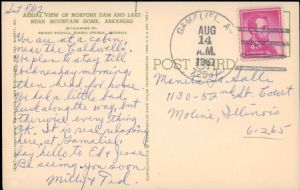 AERIAL VIEW OF NORFORK DAM AND LAKE
NEAR MOUNTAIN HOME, ARKANSAS
We are at a cabin
near the Caldwells.
We plan to stay till
Wednesday morning
then head for home.
We had a little bad
luck along the way, but
otherwise every thing
O.K. It is real relaxing
here at Gamaliel.
Say hello to Ed & Jesse
Be seeing you soon.
Milly & Ted.
GAMALIEL, A
AUG
14
A.M.
1967
POST CARD
1130-52 Court
Moline, Illinois
61265